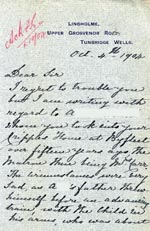 LINGHOLME,
UPPER GROSVENOR ROAD,
TUNBRIDGE WELLS.
Oct. 4th 1924
Dear Sir
I regret to trouble you
but I am writing with
regard to a
whom you took into your
Cripples Home at Byfleet
some fifteen years ago. The
name then being
The circumstances were very
sad, as a father threw
himself before an advancing
with the child in
his arms, who was about